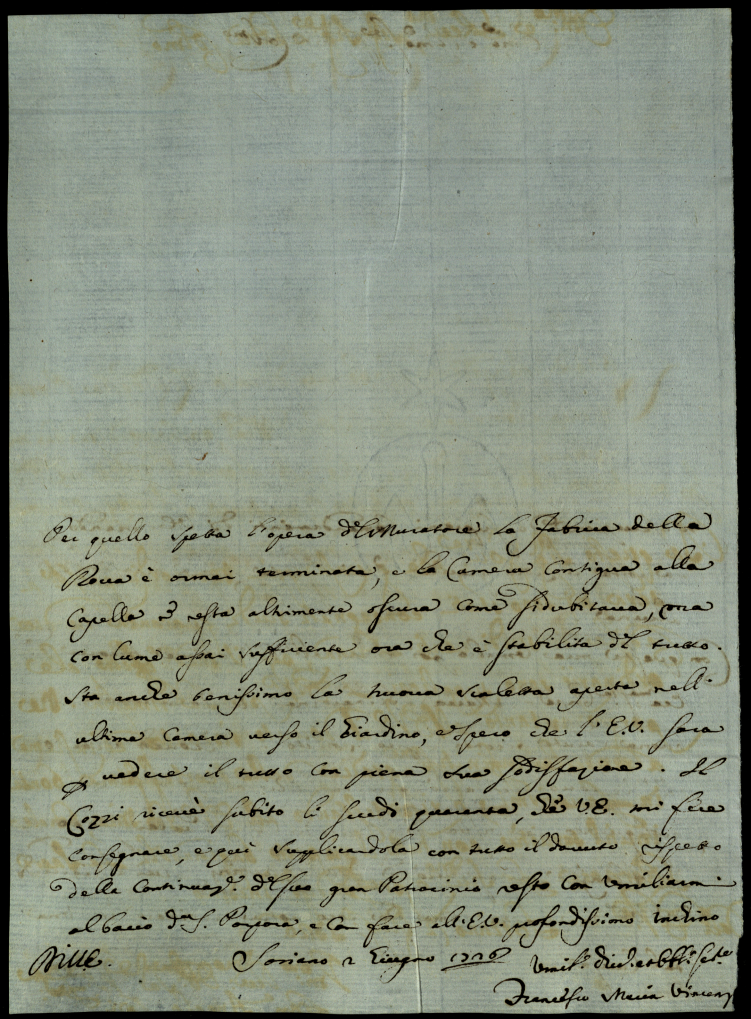 Per quello spetta l'opera del Muratore la Fabrica della
Rocca è ormai terminata, e la Camera contigua alla
Capella resta altrimente oscura come si dubitava, ma
con lume assai sufficiente ora che è stabilita del tutto.
Sta anche benissimo la nuova scaletta aperta nell'
ultima Camera verso il Giardino, e spero che l'E.V. sarà
vedere il tutto con piena sua sodisfazione. Il
Cozzi ricevè subito li scudi quaranta, che V.E. mi fece
consegnare, e qui supplicandola con tutto il dovuto rispetto
della continuaz.e del suo gran Patrocinio resto con umiliarmi
al bacio della S. Porpora, e con fare all'E.V. profondissimo inchino
Soriano 2 Giugno 1726
Francesco Maria